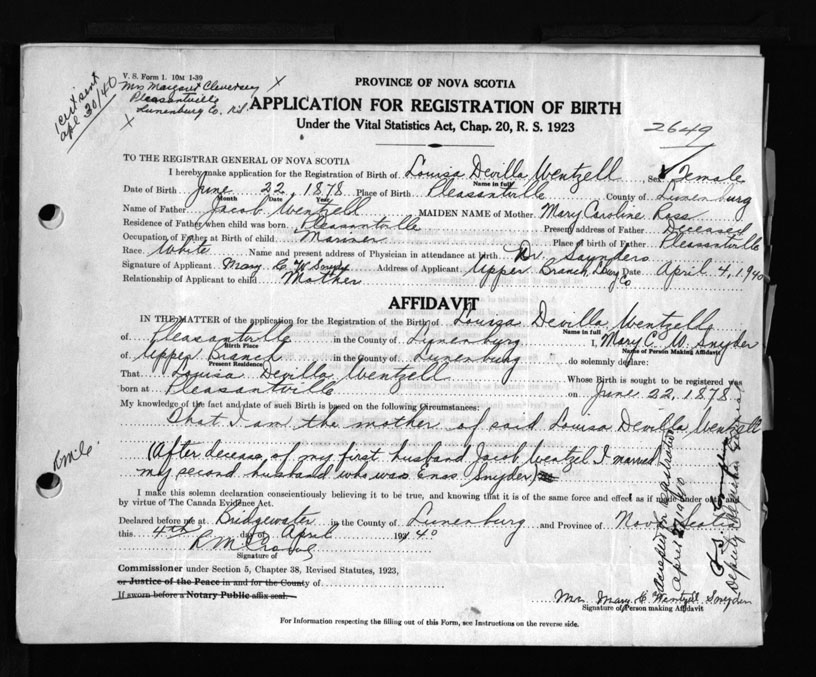 V. S. Form 1. 10M 1-39
Mrs Margaret Cleversey
Pleasantville
Lunenburg Co. N.S.
cert sent
Apl 30/40
PROVINCE OF NOVA SCOTIA
APPLICATION FOR REGISTRATION OF BIRTH
Under the Vital Statistics Act, Chap. 20, R. S. 1923
2649
TO THE REGISTRAR GENERAL OF NOVA SCOTIA
I hereby make application for the Registration of Birth of Louisa Devilla Wentzell Sex Female
Name in full
Date of Birth June 22, 1878 Place of Birth Pleasantville County of Lunenburg
Month Date Year
Name of Father Jacob Wentzell MAIDEN NAME of Mother Mary Caroline Ross
Residence of Father when child was born Pleasantville Present address of Father Deceased
Occupation of Father at Birth of child Mariner Place of birth of Father Pleasantville
Race White Name and present address of Physician in attendance at birth Dr. Saunders
Signature of Applicant Mary C W Snyder Address of Applicant Upper Branch, Lbg Co Date April 4, 1940
Relationship of Applicant to child Mother
AFFIDAVIT
IN THE MATTER of the application for the Registration of the Birth of Louisa Devilla Wentzell
Name in full
of Pleasantville in the County of Lunenburg I, Mary C. W. Snyder
Birth Place Name of Person Making Affidavit
of Upper Branch in the County of Lunenburg do solemnly declare:
Present Residence
That Louisa Devilla Wentzell Whose Birth is sought to be registered was
born at Pleasantville on June 22, 1878
My knowledge of the fact and date of such Birth is based on the following Circumstances:
That I am the mother of said Louisa Devilla Wentzell
(After decease of my first husband Jacob Wentzel I married
my second husband who was Enos Snyder)
I make this solemn declaration conscientiously believing it to be true, and knowing that it is of the same force and effect as if made under oath and
by virtue of The Canada Evidence Act.
Declared before me at Bridgewater in the County of Lunenburg and Province of Nova Scotia
this 4th day of April 1940
Signature of
Commissioner under Section 5, Chapter 38, Revised Statutes, 1923,
or Justice of the Peace in and for the County of
If sworn before a Notary Public affix seal.
Mrs. Mary C Wentzell Snyder
Signature of Person making Affidavit
For Information respecting the filling out of this Form, see Instructions on the reverse side.
Accepted for Registration
April 27 1940
Deputy Registrar General